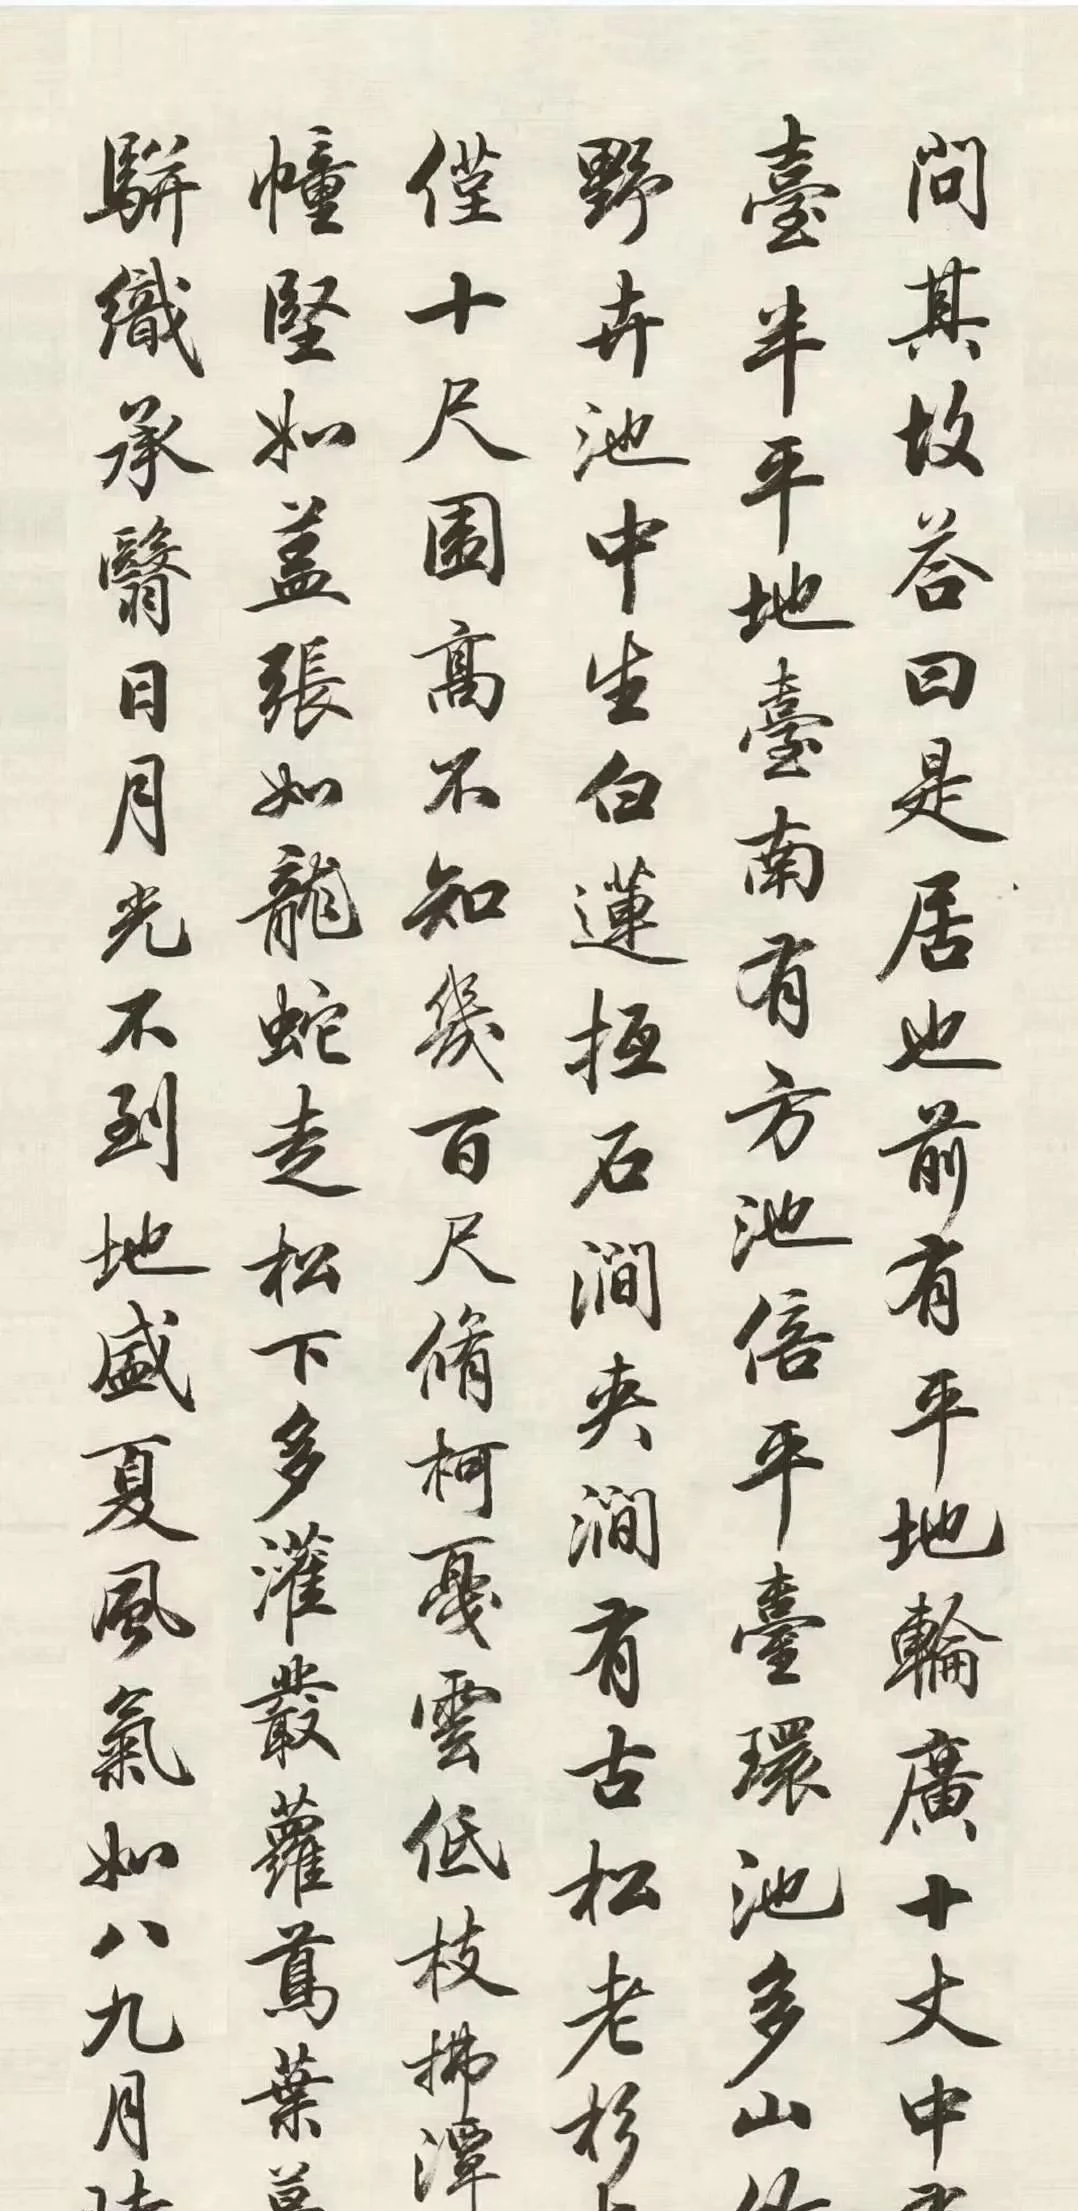 問其故答曰是居也前有平地輪廣十丈中
臺半平地臺南有方池倍平臺環池多山
野卉池中生白蓮抵石澗夾澗有古松老杉
僅十尺围高不知幾百尺脩柯戞雲低枝拂潭
幢竪如蓋張如龍蛇走松下多灌叢蘿蔦葉
駢織承翳日月光不到地盛夏風氣如八九月